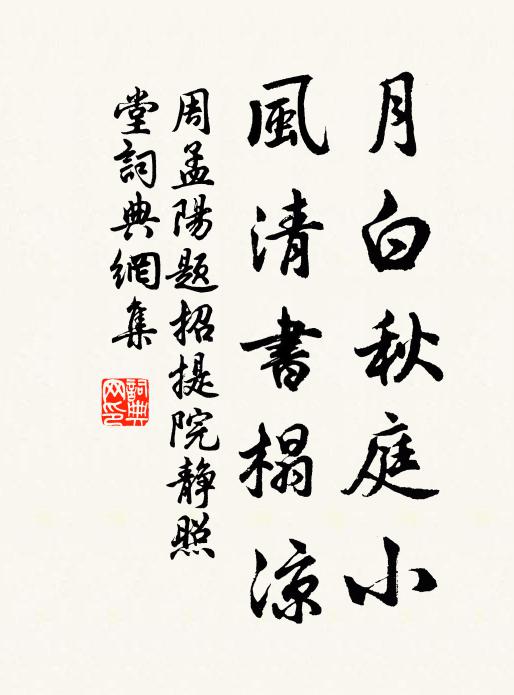 月白秋庭小
風清書榻涼
周孟陽題招提院靜照
堂詞典網集
詞典網印